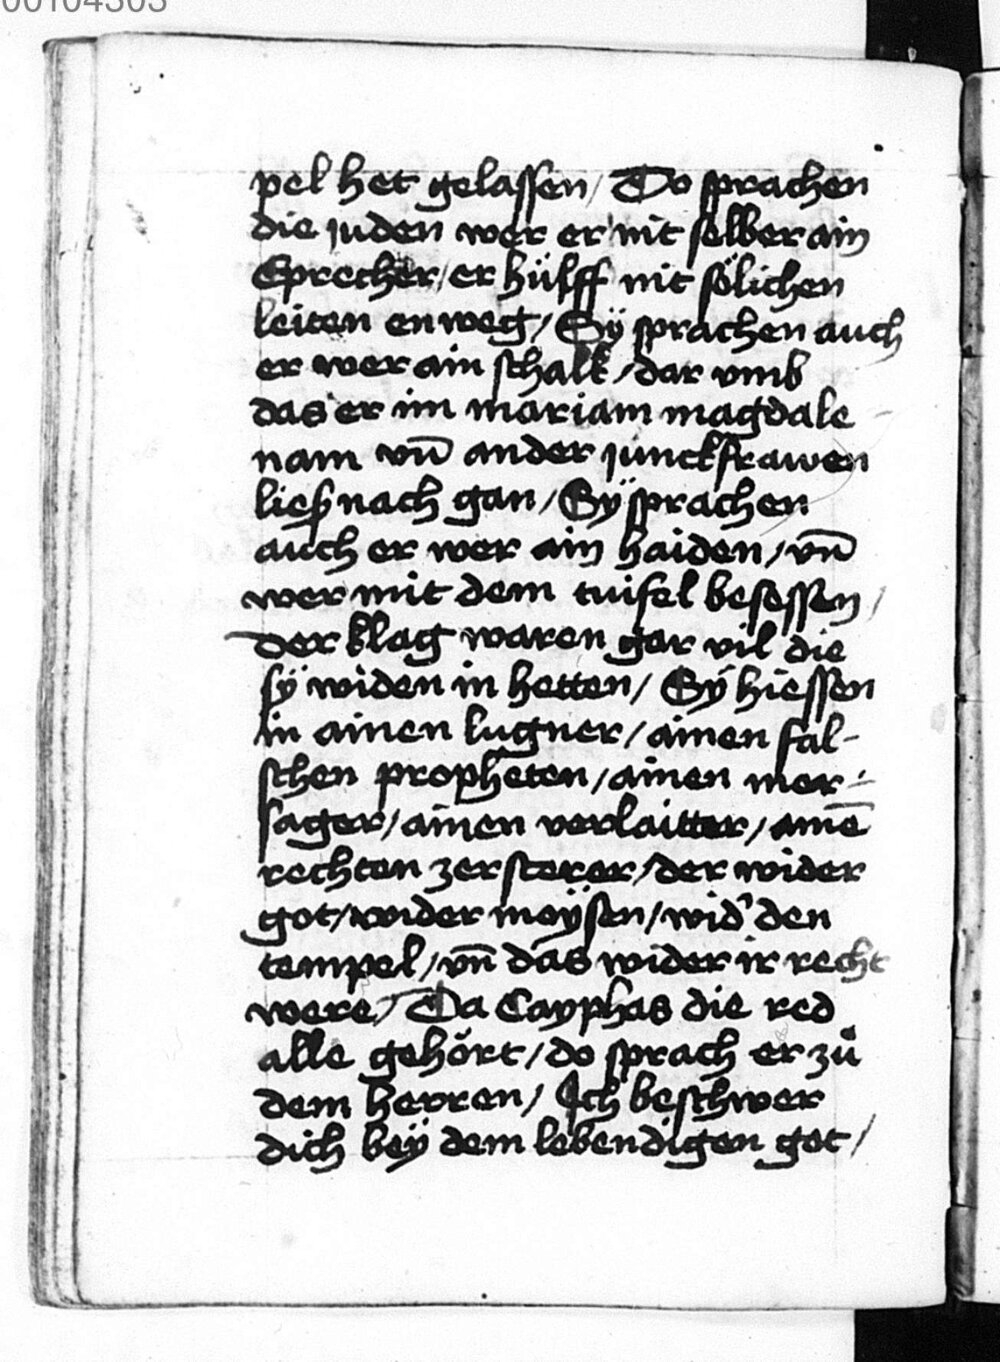 00104303
pel het gelassen / Do sprachen
die juden wer er nit selber ain
Eprecher / er hülff nit sölichen
leiten enweg / Sÿ sprachen auch
er wer ain schalk / dar vmb
das er im mariam magdale
nam vn̄ ander junckfrawen
ließ nach gan / Sÿ sprachen
auch er wer ain haiden / vn̄
wer mit dem tuifel besessen /
der klag waren gar vil die
sÿ widen in hetten / Sÿ hiessen
in ainen lugner / ainen fal-
schen propheten / ainen mer-
sager / ainen verlaitter / ainē
rechten zersterer / der wider
got / wider moÿsen / wid' den
tempel / vn̄ das wider ir recht
were / Da Cayphas die red
alle gehört / do sprach er zů
dem herren / Ich beschwer
dich beÿ dem lebendigen got /